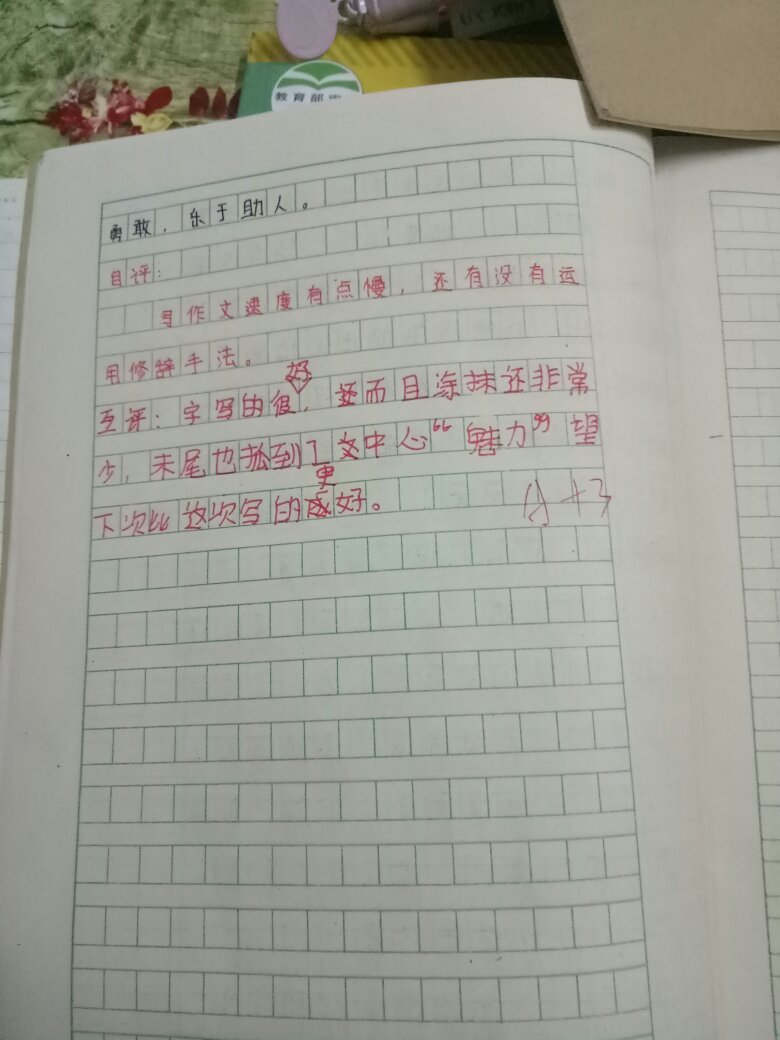 教育部审
勇敢，乐于助人。
自评：
写作文速度有点慢，还有没有运
用修辞手法。
互评：字写的很好，还而且涂抹还非常
少，末尾也抓到了文中心“魅力”望
下次比这次写的更好。
A+3